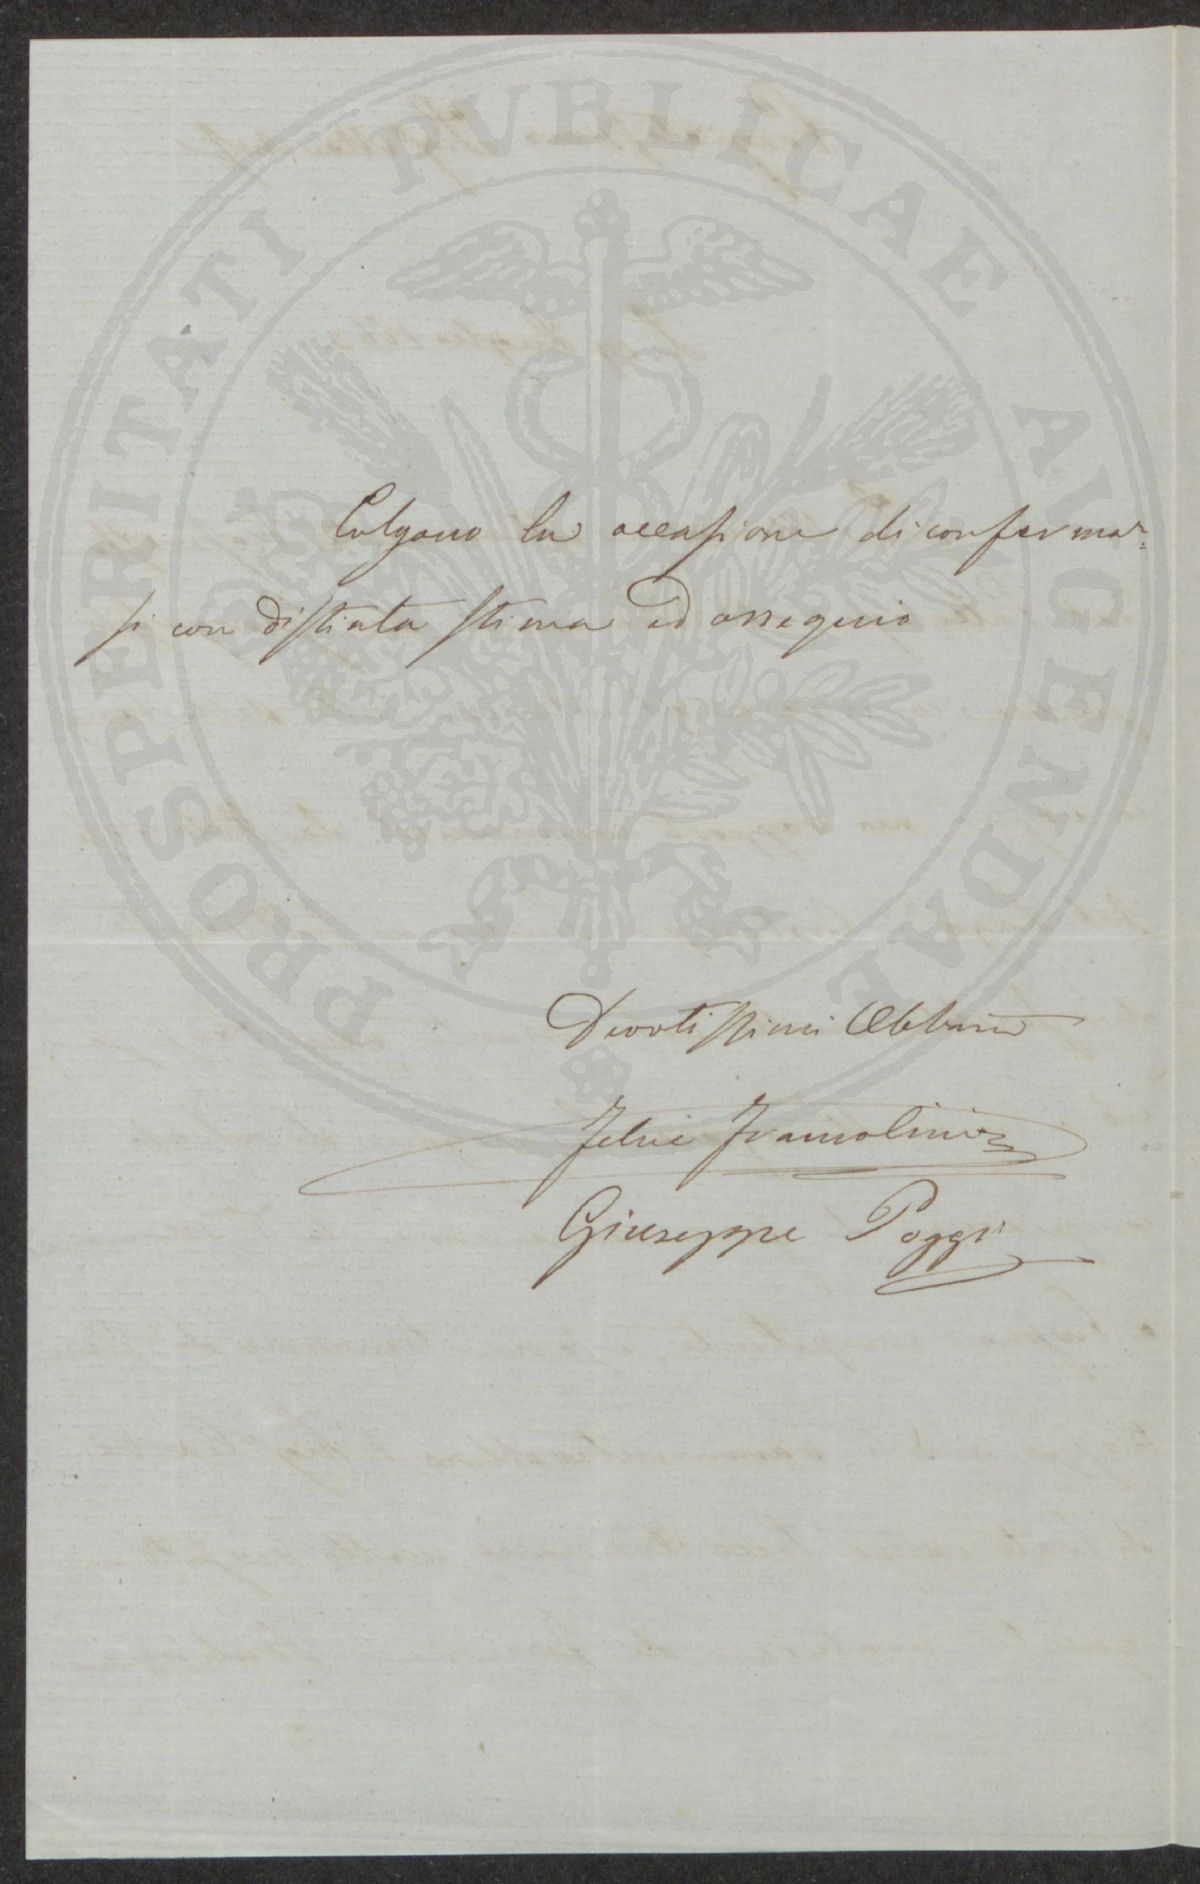 PROSPERITATI PVBLICAE AVGENDAE
Colgono la occasione di confermar=
si con distinta stima ed ossequio
Devotissimi Obbmi
Giuseppe Poggi